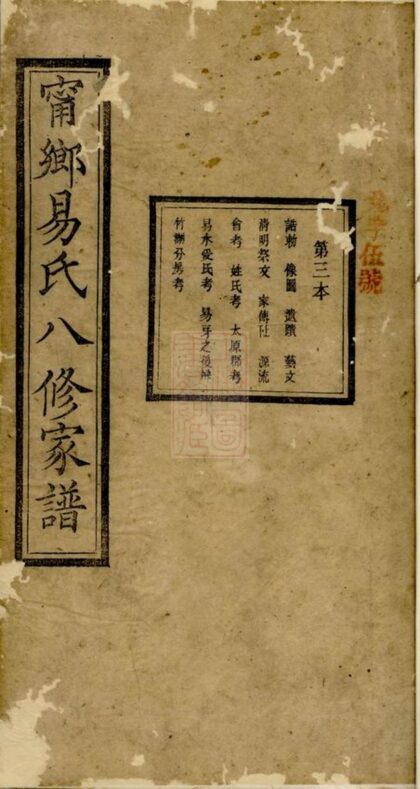 甯鄉易氏八修家譜
第三本
誥勅 像圖 藝文
清明祭文 家傳 源流
會考 姓氏考 太原郡考
易水受氏考 易牙之後辨
竹湖分易考
字伍號